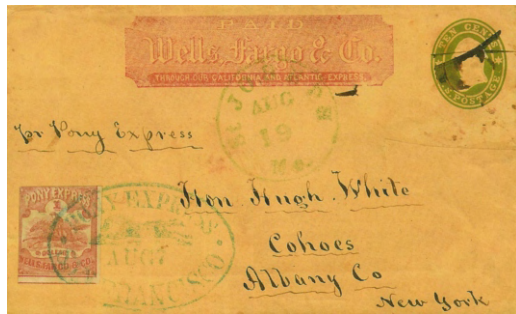 PAID
Wells, Fargo & Co.
THROUGH OUR CALIFORNIA AND ATLANTIC EXPRESS.
TEN CENTS
U.S. POSTAGE
AUG
19
Mo.
pr Pony Express
PONY EXPRESS
WELLS, FARGO & CO.
PONY EXPRESS
AUG 7
SAN FRANCISCO.
Hon. Hugh White
Cohoes
Albany Co
New York